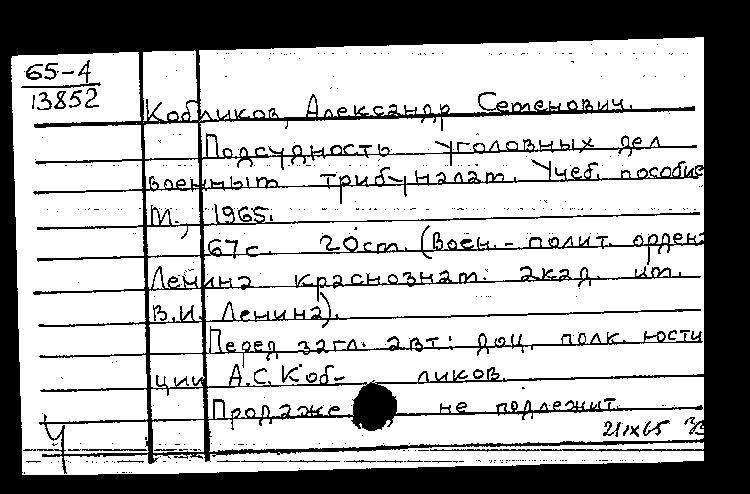 65-4
13852
Кобликов, Александр Семенович.
Подсудность уголовных дел
военным трибуналам. Учеб. пособие
М., 1965.
67с. 20см. (Воен.-полит. ордена
Ленина краснознам. акад. им.
В.И. Ленина).
Перед загл. авт: доц. полк. юсти
ции А.С. Коб- ликов.
Продаже не подлежит.
21/IX65
Ч